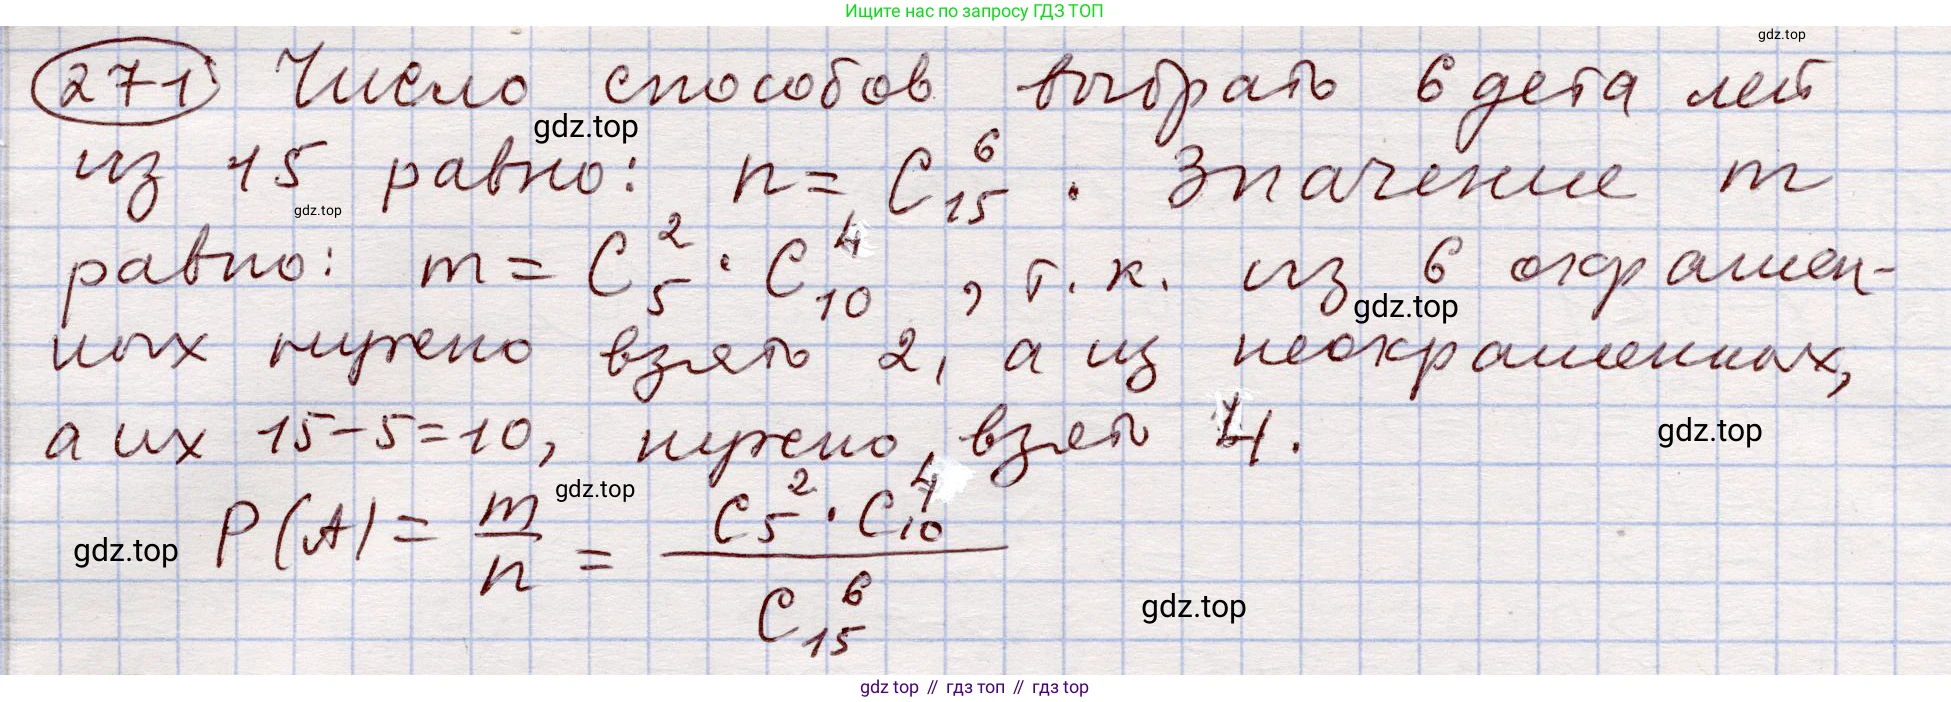 Ищите нас по запросу ГДЗ ТОП
gdz.top
271 Число способов выбрать 6 деталей
gdz.top
из 15 равно: n = C₁₅⁶. Значение m
gdz.top
равно: m = C₅² · C₁₀⁴, т.к. из 6 окрашен-
gdz.top
ных нужно взять 2, а из неокрашенных,
а их 15-5=10, нужно взять 4.
gdz.top
gdz.top
P(A) = m/n = C₅² · C₁₀⁴ / C₁₅⁶
gdz.top
gdz.top
gdz top // гдз топ // gdz top